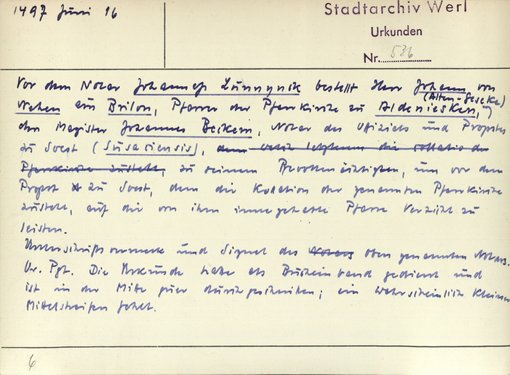 1497 Juni 16
Stadtarchiv Werl
Urkunden
Nr. 536
Vor dem Notar Johannes Lünnynck bestellt Herr Johann von
(Alten-Geseke)
Nehen aus Brilon, Pfarrer der Pfarrkirche zu Aldenieseken,
den Magister Johannes Beckem, Notar des Offizials und Propstes
zu Soest (Susaciensis), dem
Pfarrkirche zusteht, zu seinem Bevollmächtigten, um vor dem
Propst zu Soest, dem die Kollation der genannten Pfarrkirche
zusteht, auf die von ihm innegehabte Pfarre Verzicht zu
leisten.
Unterschriftsvermerk und Signet des oben genannten Notars.
Or. Pgt. Die Urkunde habe als Bucheinband gedient und
ist in der Mitte quer durchgeschnitten; ein wahrscheinlich kleiner
Mittelstreifen fehlt.
6